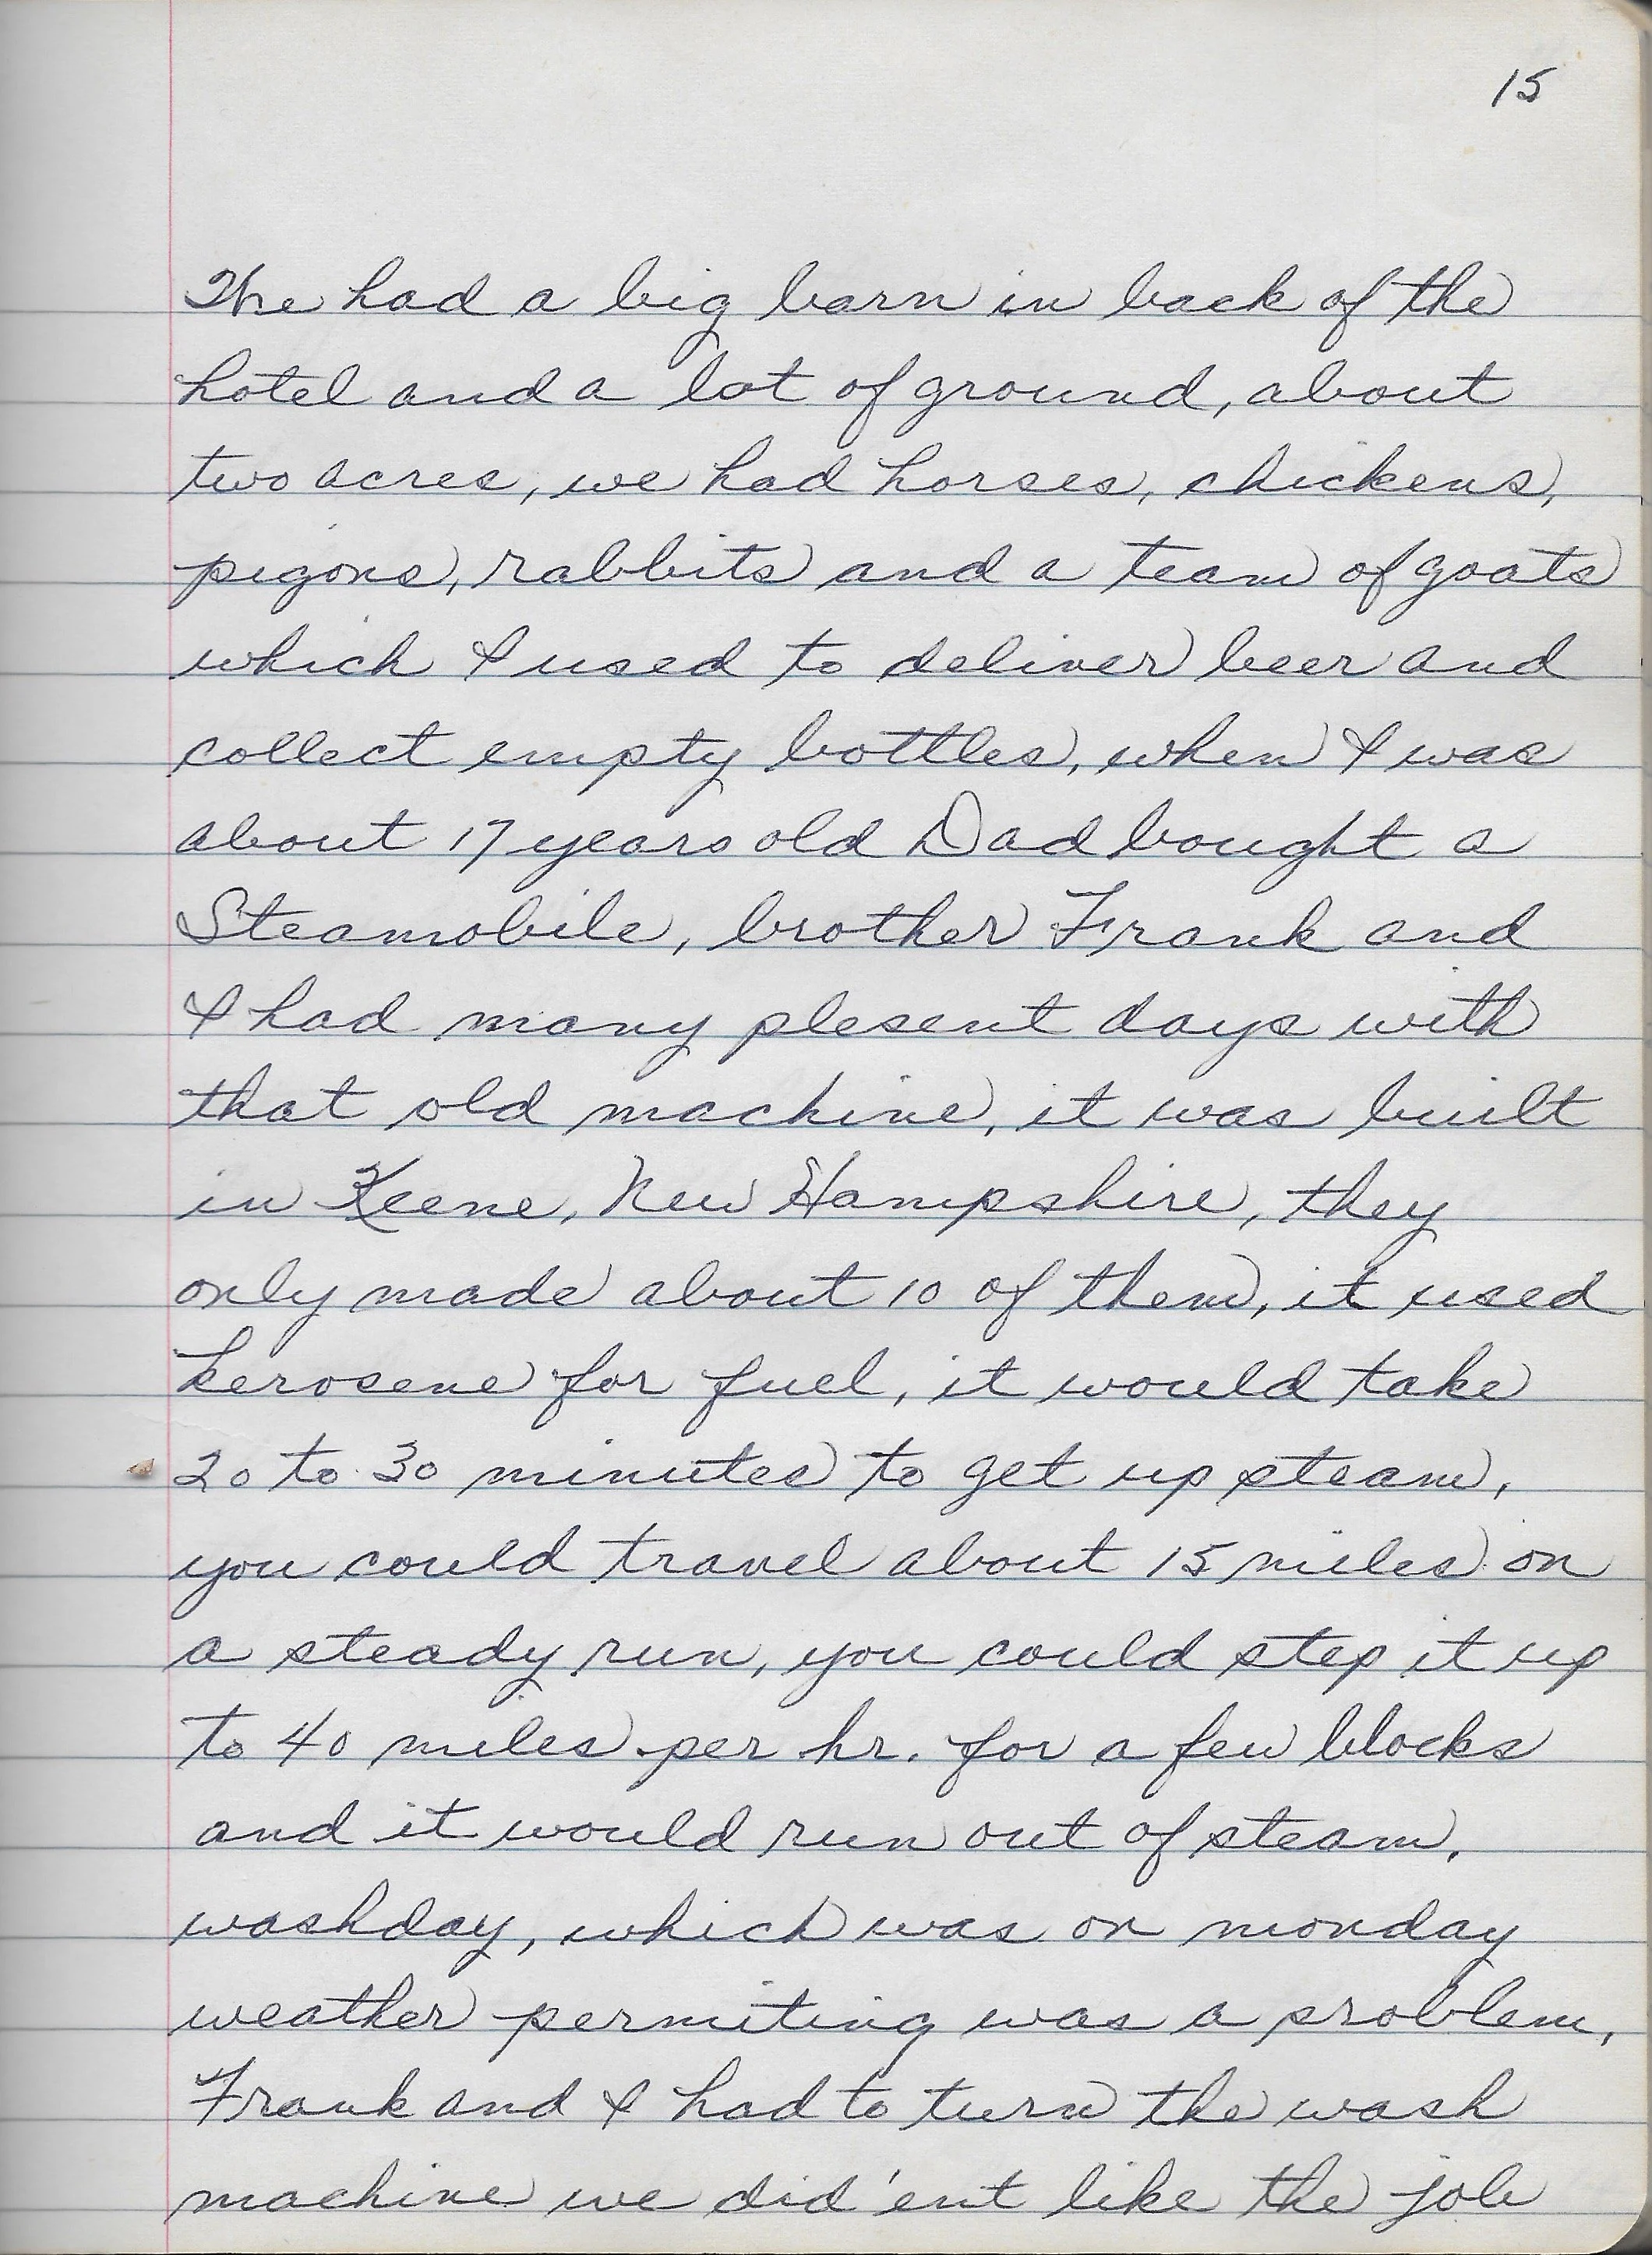 15
The had a big barn in back of the
hotel and a lot of ground, about
two acres, we had horses, chickens,
pigons, rabbits and a team of goats
which I used to deliver beer and
collect empty bottles, when I was
about 17 years old Dad bought a
Steamobile, brother Frank and
I had many plesent days with
that old machine, it was built
in Keene, New Hampshire, they
only made about 10 of them, it used
kerosene for fuel, it would take
20 to 30 minutes to get up steam,
you could travel about 15 miles on
a steady run, you could step it up
to 40 miles per hr. for a few blocks
and it would run out of steam.
washday, which was on monday
weather permiting was a problem,
Frank and I had to turn the wash
machine we did'ent like the job